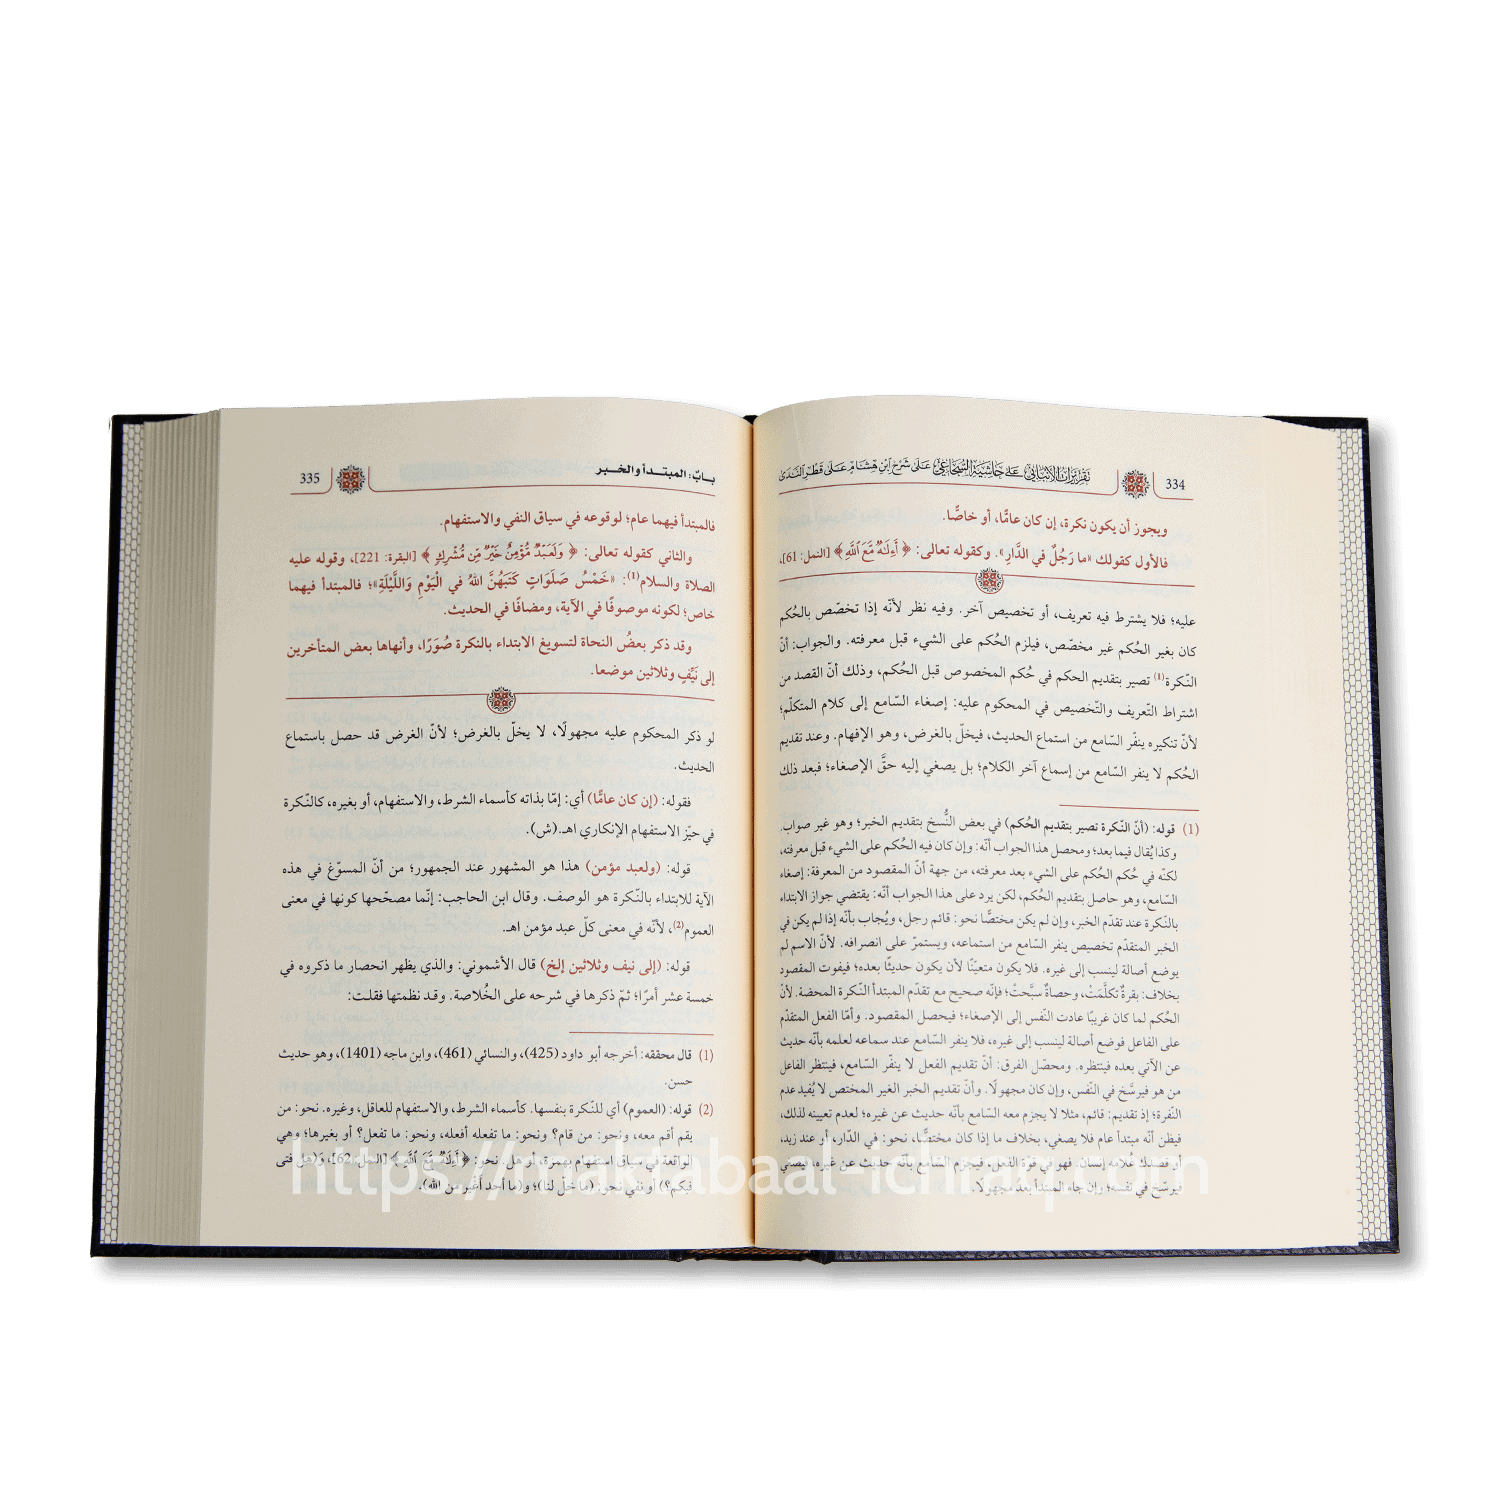 334
تقريرات الأنبابي على حاشية السجاعي على شرح ابن هشام على قطر الندى
ويجوز أن يكون نكرة، إن كان عامًّا، أو خاصًّا.
فالأول كقولك «ما رَجُلٌ في الدَّارِ». وكقوله تعالى: ﴿ أَءِلَٰهٌ مَّعَ ٱللَّهِ ﴾ [النمل: 61]،
عليه؛ فلا يشترط فيه تعريف، أو تخصيص آخر. وفيه نظر لأنّه إذا تخصّص بالحُكم
كان بغير الحُكم غير مخصّص، فيلزم الحُكم على الشيء قبل معرفته. والجواب: أنّ
النّكرة(1) تصير بتقديم الحكم في حُكم المخصوص قبل الحُكم، وذلك أنّ القصد من
اشتراط التّعريف والتّخصيص في المحكوم عليه: إصغاء السّامع إلى كلام المتكلّم؛
لأنّ تنكيره ينفّر السّامع من استماع الحديث، فيخلّ بالغرض، وهو الإفهام. وعند تقديم
الحُكم لا ينفر السّامع من إسماع آخر الكلام؛ بل يصغي إليه حقَّ الإصغاء؛ فبعد ذلك
(1) قوله: (أنّ النّكرة تصير بتقديم الحُكم) في بعض النُّسخ بتقديم الخبر؛ وهو غير صواب.
وكذا يُقال فيما بعد؛ ومحصل هذا الجواب أنّه: وإن كان فيه الحُكم على الشيء قبل معرفته،
لكنّه في حُكم الحُكم على الشيء بعد معرفته، من جهة أنّ المقصود من المعرفة: إصغاء
السّامع، وهو حاصل بتقديم الحُكم، لكن يرد على هذا الجواب أنّه: يقتضي جواز الابتداء
بالنّكرة عند تقدّم الخبر، وإن لم يكن مختصًّا نحو: قائم رجل، ويُجاب بأنّه إذا لم يكن في
الخبر المتقدّم تخصيص ينفر السّامع من استماعه، ويستمرّ على انصرافه. لأنّ الاسم لم
يوضع أصالة لينسب إلى غيره. فلا يكون متعيّنًا لأن يكون حديثًا بعده؛ فيفوت المقصود
بخلاف: بقرةٌ تكلَّمَتْ، وحصاةٌ سبَّحتْ؛ فإنّه صحيح مع تقدّم المبتدأ النّكرة المحضة. لأنّ
الحُكم لما كان غريبًا عادت النّفس إلى الإصغاء؛ فيحصل المقصود. وأمّا الفعل المتقدّم
على الفاعل فوضع أصالة لينسب إلى غيره، فلا ينفر السّامع عند سماعه لعلمه بأنّه حديث
عن الآتي بعده فينتظره. ومحصّل الفرق: أنّ تقديم الفعل لا ينفّر السّامع، فينتظر الفاعل
من هو فيرسَّخ في النّفس، وإن كان مجهولًا. وأنّ تقديم الخبر الغير المختص لا يُفيد عدم
النّفرة؛ إذ تقديم: قائم، مثلا لا يجزم معه السّامع بأنّه حديث عن غيره؛ لعدم تعيينه لذلك،
فيظن أنّه مبتدأ عام فلا يصغي، بخلاف ما إذا كان مختصًّا، نحو: في الدّار، أو عند زيد،
أو قصدك غُلامه إنسان. فهو في قوة الفعل، فيجزم السّامع بأنّه حديث عن غيره، فيصغي
فيرسّخ في نفسه؛ وإن جاء المبتدأ بعد مجهولًا.
بابٌ: المبتدأ والخبر
335
فالمبتدأ فيهما عام؛ لوقوعه في سياق النفي والاستفهام.
والثاني كقوله تعالى: ﴿ وَلَعَبْدٌ مُّؤْمِنٌ خَيْرٌ مِّن مُّشْرِكٍ ﴾ [البقرة: 221]، وقوله عليه
الصلاة والسلام(1): «خَمْسُ صَلَوَاتٍ كَتَبَهُنَّ اللهُ في الْيَوْمِ وَاللَّيْلَةِ»؛ فالمبتدأ فيهما
خاص؛ لكونه موصوفًا في الآية، ومضافًا في الحديث.
وقد ذكر بعضُ النحاة لتسويغ الابتداء بالنكرة صُوَرًا، وأنهاها بعض المتأخرين
إلى نَيِّفٍ وثلاثين موضعا.
لو ذكر المحكوم عليه مجهولًا، لا يخلّ بالغرض؛ لأنّ الغرض قد حصل باستماع
الحديث.
فقوله: (إن كان عامًّا) أي: إمّا بذاته كأسماء الشرط، والاستفهام، أو بغيره، كالنّكرة
في حيّز الاستفهام الإنكاري اهـ.(ش).
قوله: (ولعبد مؤمن) هذا هو المشهور عند الجمهور؛ من أنّ المسوّغ في هذه
الآية للابتداء بالنّكرة هو الوصف. وقال ابن الحاجب: إنّما مصحّحها كونها في معنى
العموم(2)، لأنّه في معنى كلّ عبد مؤمن اهـ.
قوله: (إلى نيف وثلاثين إلخ) قال الأشموني: والذي يظهر انحصار ما ذكروه في
خمسة عشر أمرًا؛ ثمّ ذكرها في شرحه على الخُلاصة. وقد نظمتها فقلت:
(1) قال محققه: أخرجه أبو داود (425)، والنسائي (461)، وابن ماجه (1401)، وهو حديث
حسن.
(2) قوله: (العموم) أي للنّكرة بنفسها. كأسماء الشرط، والاستفهام للعاقل، وغيره. نحو: من
يقم أقم معه، ونحو: من قام؟ ونحو: ما تفعله أفعله، ونحو: ما تفعل؟ أو بغيرها؛ وهي
الواقعة في سياق استفهام بهمزة، أو هل. نحو: ﴿ أَءِلَٰهٌ مَّعَ ٱللَّهِ ﴾ [النمل: 62]، و(هل فتى
فيكم؟) أو نفي نحو: (ما خلّ لنا)؛ و(ما أحد أغير من الله).
https://maktabaal-ichraq.com